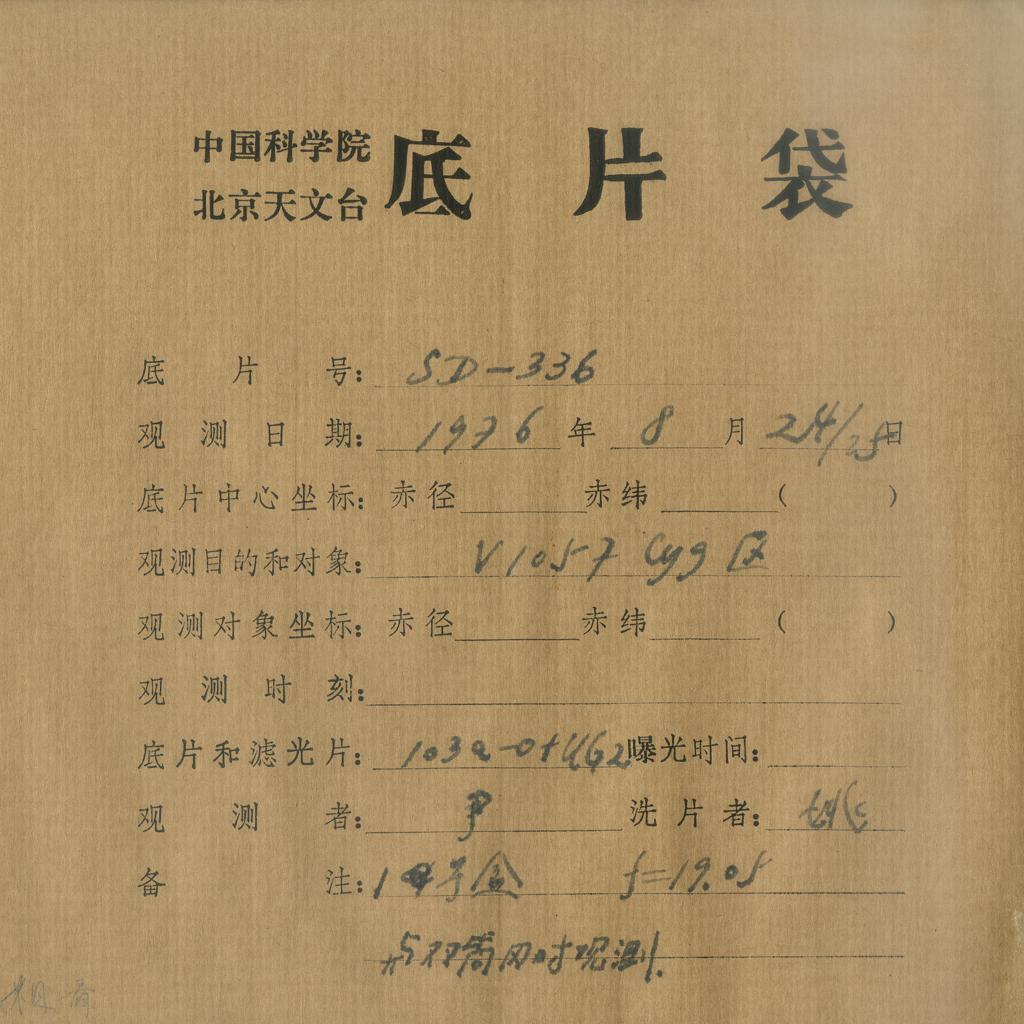 中国科学院
北京天文台
底片袋
底片号: SD-336
观测日期: 1976年8月24/25日
底片中心坐标: 赤径 赤纬 ( )
观测目的和对象: V1057 Cyg 区
观测对象坐标: 赤径 赤纬 ( )
观测时刻:
底片和滤光片: 103a-O+UG2 曝光时间:
观测者: 尹 洗片者:
备注: 1 号盒 f=19.05
与双筒同时观测.